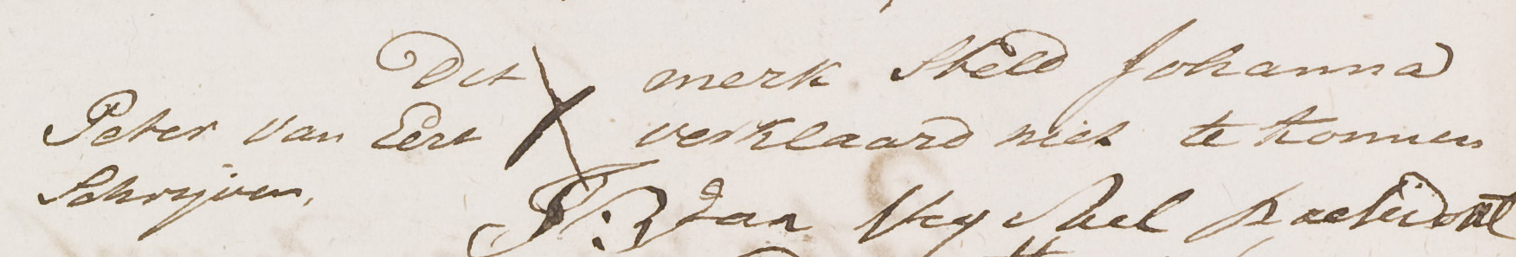 Dit X merk Steld Johanna
Peter van Eert verklaard niet te konnen
Schrijven,
Jan